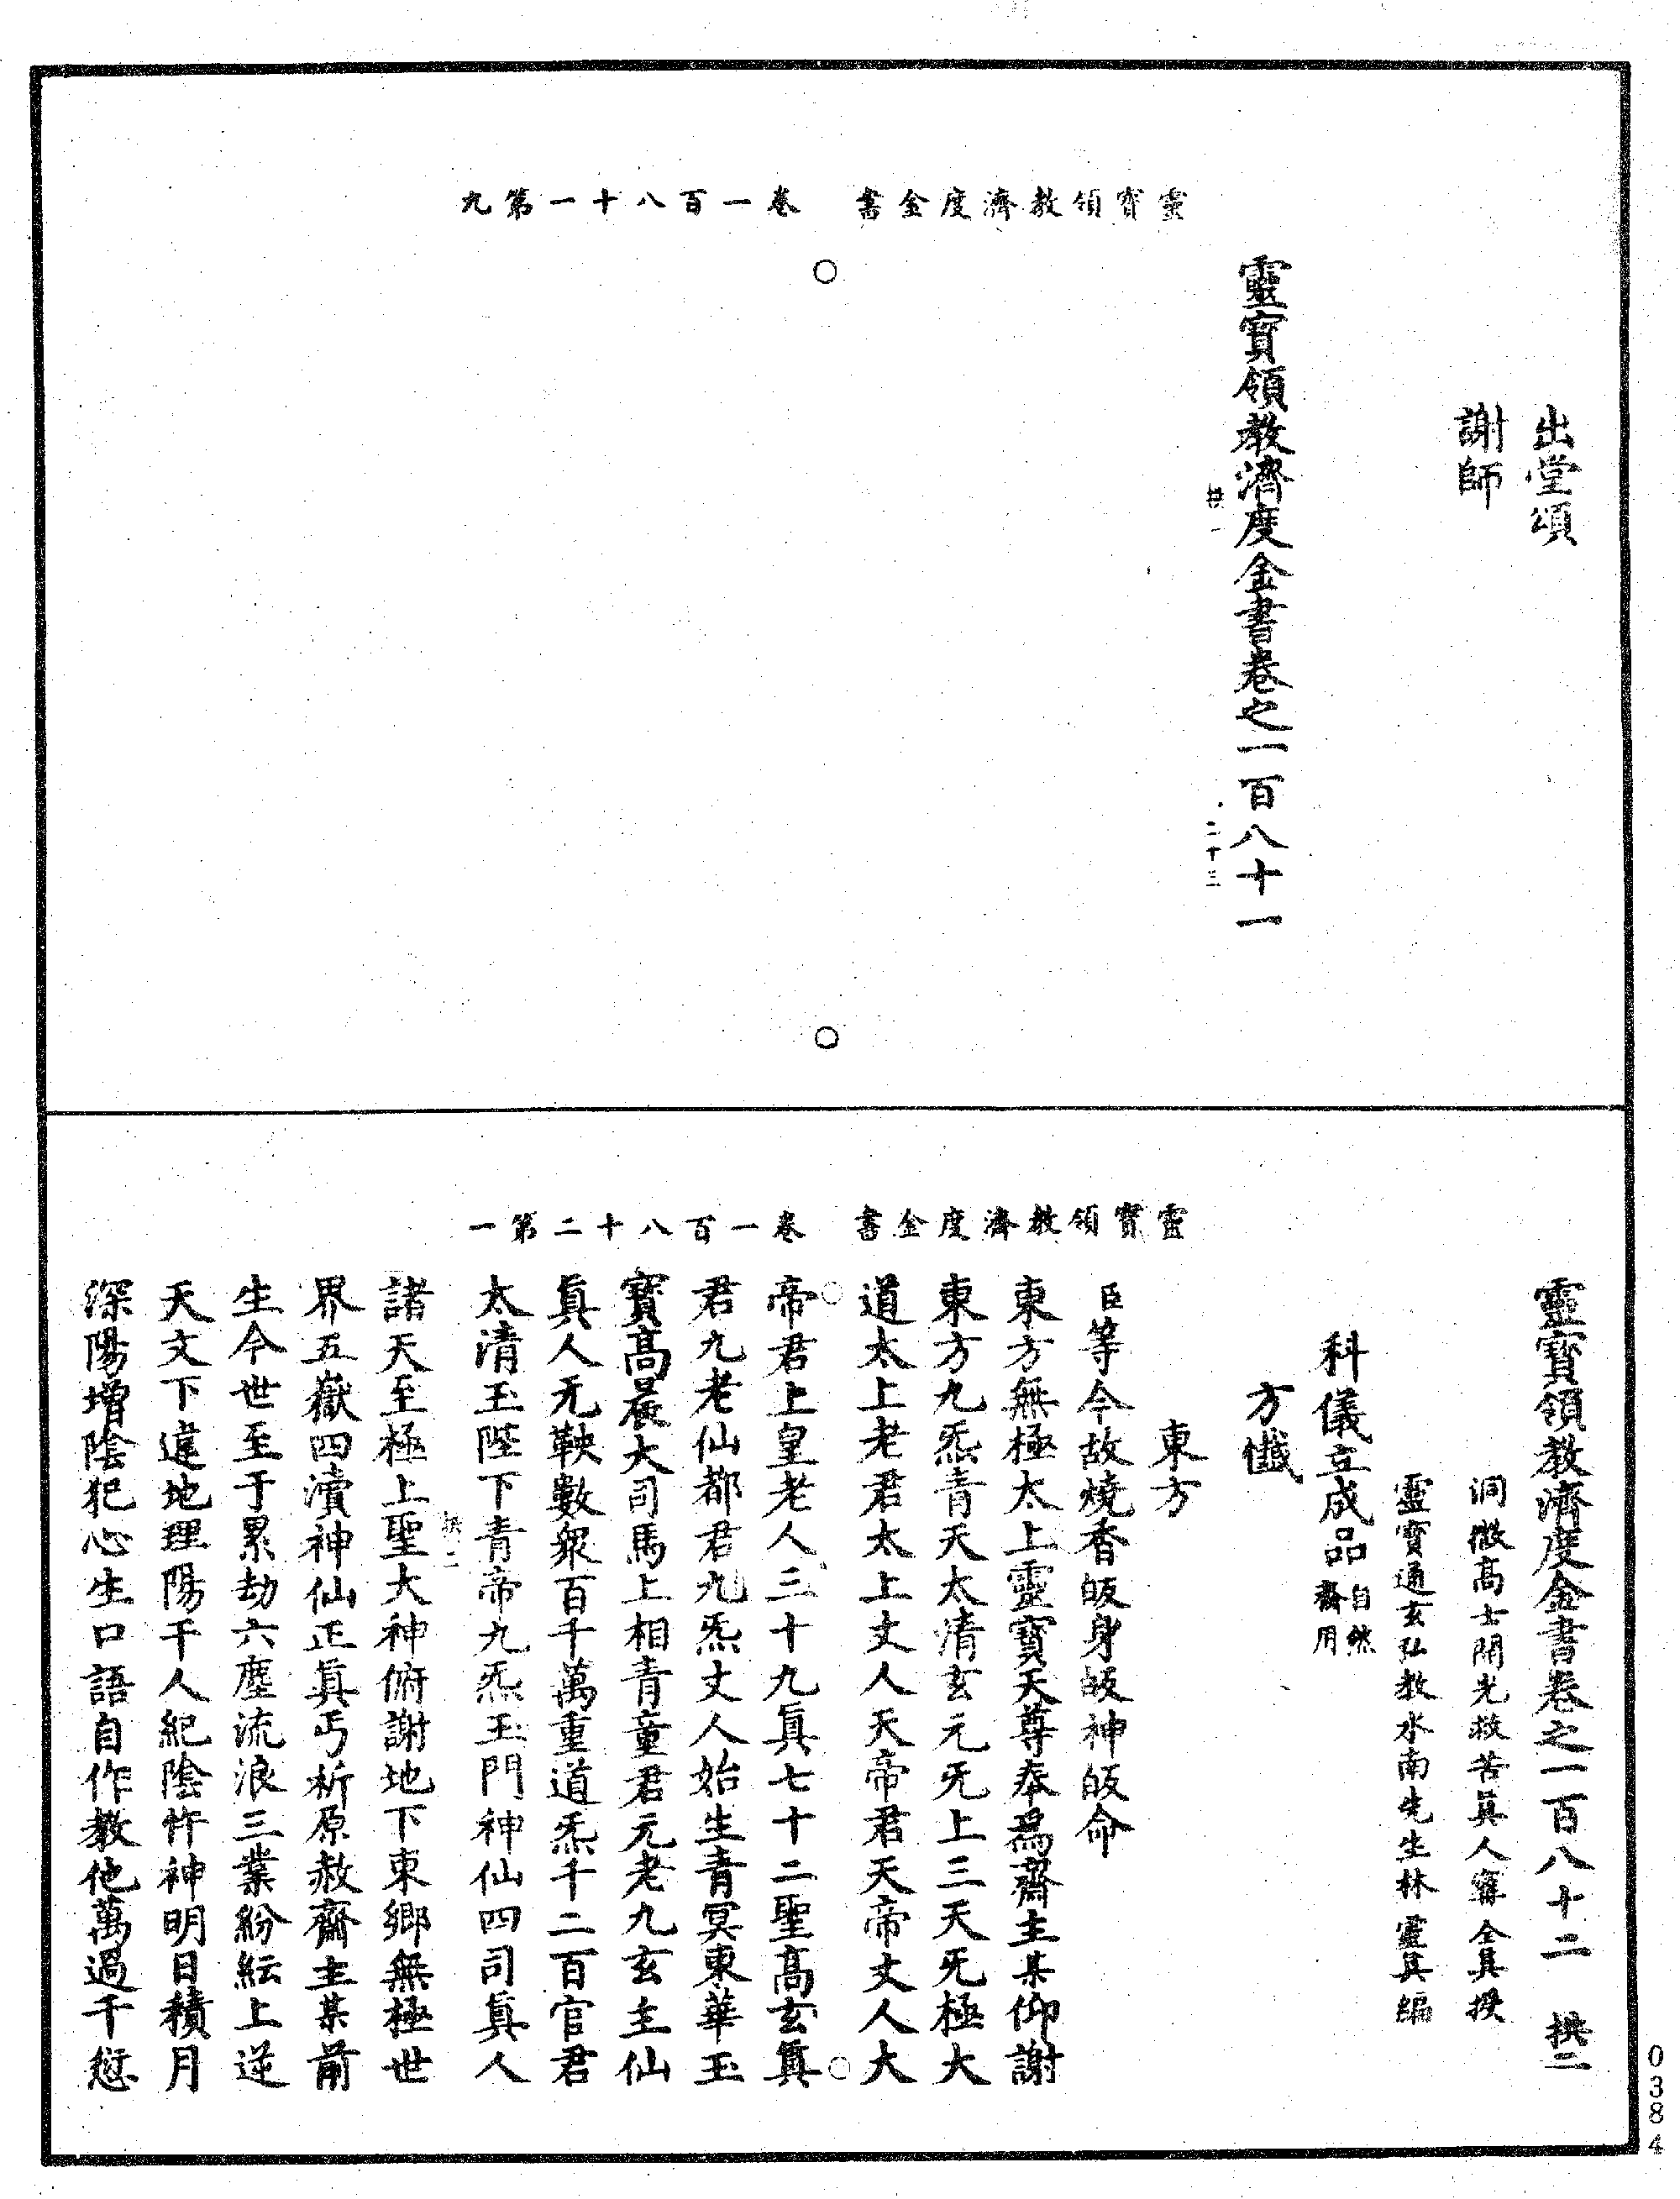 靈寶領教濟度金書　卷一百八十一第九
出堂頌
謝師
靈寶領教濟度金書卷之一百八十一
二十三
靈寶領教濟度金書　卷一百八十二第一
靈寶領教濟度金書卷之一百八十二　拱二
洞微高士開光救苦眞人甯全眞授
靈寶通玄弘教水南先生林靈眞編
科儀立成品自然齋用
方懺
東方
臣等今故燒香皈身皈神皈命
東方無極太上靈寶天尊奉爲齋主某仰謝
東方九炁青天太清玄元旡上三天旡極大
道太上老君太上丈人天帝君天帝丈人大
帝君上皇老人三十九眞七十二聖高玄眞
君九老仙都君九炁丈人始生青冥東華玉
寶高晨大司馬上相青童君元老九玄主仙
眞人无鞅數衆百千萬重道炁千二百官君
太清玉陛下青帝九炁玉門神仙四司眞人
拱二
諸天至極上聖大神俯謝地下東鄉無極世
界五嶽四瀆神仙正眞丐祈原赦齋主某前
生今世至于累劫六塵流浪三業紛紜上逆
天文下違地理陽干人紀陰忤神明日積月
深陽增陰犯心生口語自作教他萬過千愆
0384